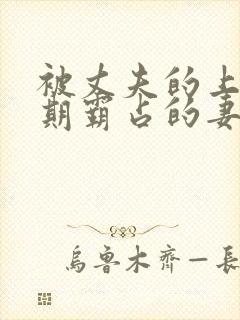 被丈夫的上
期霸占的妻
烏魯木齊—長